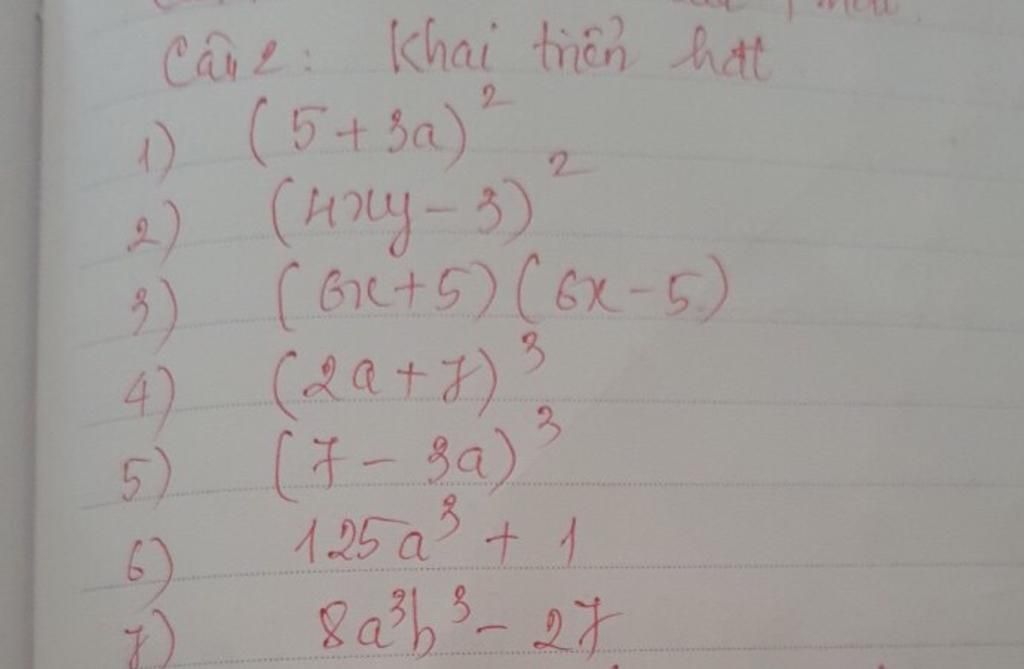 Câu 2: Khai triển hđt
1) (5 + 3a)²
2) (4xy - 3)²
3) (6x + 5)(6x - 5)
4) (2a + 7)³
5) (7 - 3a)³
6) 125a³ + 1
7) 8a³b³ - 27